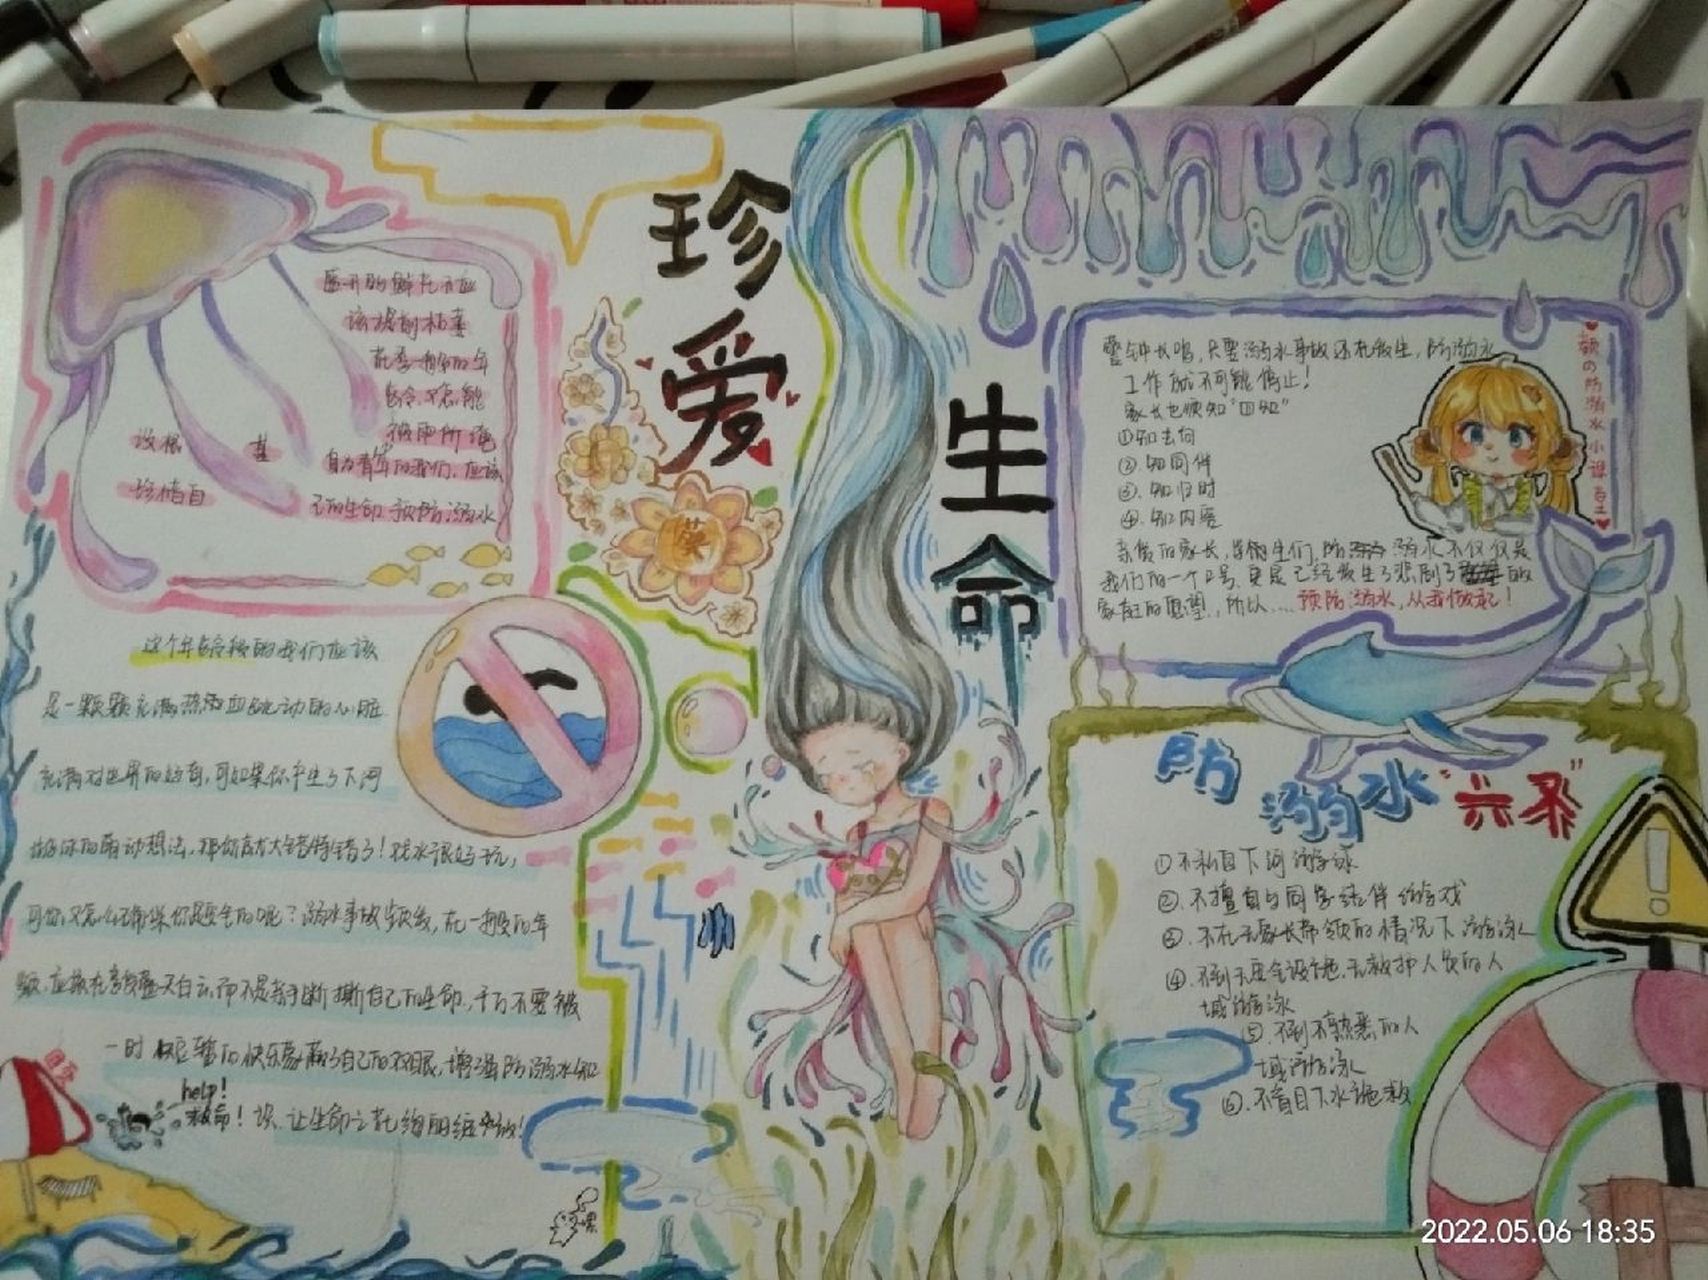 珍爱
生命
盛开的鲜花不应
该提前枯萎
在季一般的年
龄,又怎能
被雨所淹
没
甚
自为青年的我们,应该
珍惜自
己的生命,预防溺水
葵
这个年龄段的我们应该
是一颗颗充满热血跳动的心脏
充满对世界的好奇,可如果你产生了下河
游泳的萌动想法,那你就大错特错了!玩水很好玩,
可你又怎么确保你是安全的呢?溺水事故频发,在一般的年
龄,应该在享受蓝天白云,而不是亲手断撕自己的生命,千万不要被
一时短暂的快乐蒙蔽了自己的双眼,增强防溺水知
识,让生命之花绚丽绽放!
help!
救命!
警钟长鸣,只要溺水事故还在发生,防溺水
工作就不可能停止!
家长也须知"四知"
①知去向
②知同伴
③知归时
④知内容
亲爱的家长,学生们,防溺水不仅仅是
我们的一个口号,更是已经发生了悲剧了的
家庭的愿望,所以....预防溺水,从我做起!
の防溺水小课堂
防溺水"六不"
①不私自下河游泳
②不擅自与同学结伴游戏
③不在无家长带领的情况下游泳
④不到无安全设施,无救护人员的人
域游泳
⑤不到不熟悉的人
域游泳
⑥不盲目下水施救
2022.05.06 18:35